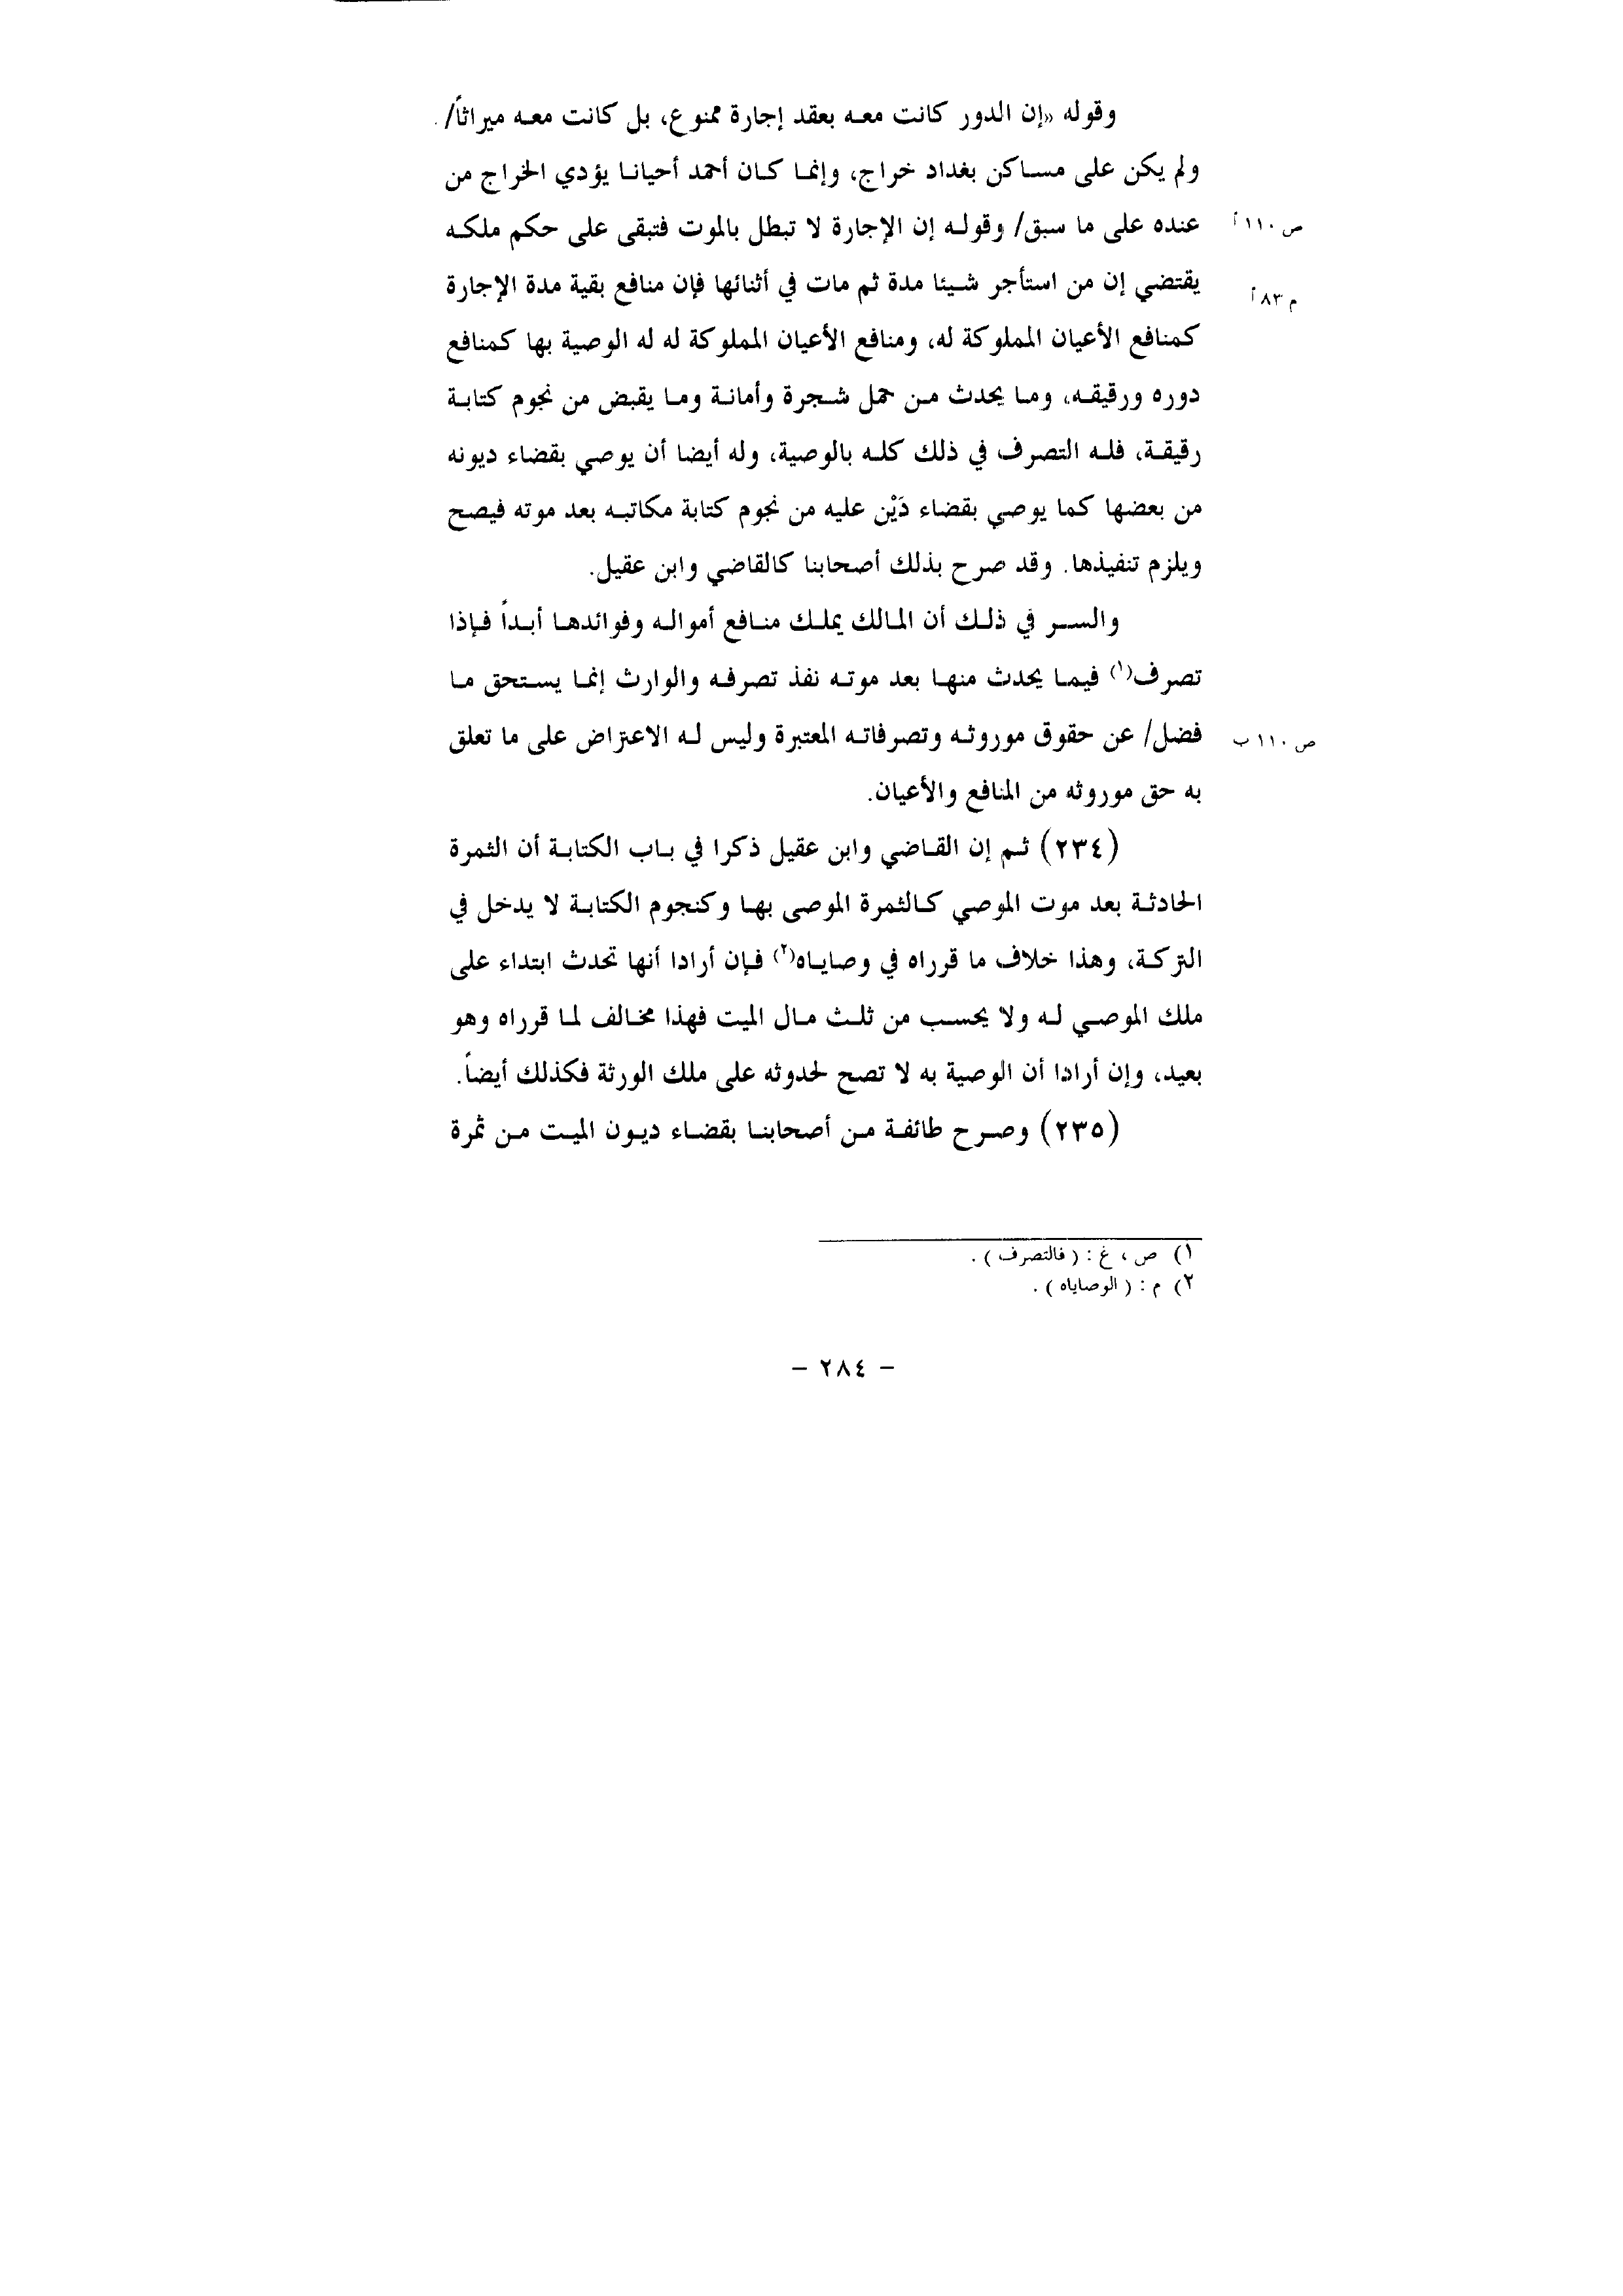 وقوله «إن الدور كانت معه بعقد إجارة ممنوع، بل كانت معه ميراثاً/
ولم يكن على مساكن بغداد خراج، وإنما كان أحمد أحيانا يؤدي الخراج من
عنده على ما سبق/ وقوله إن الإجارة لا تبطل بالموت فتبقى على حكم ملكه
ص ١١٠ أ
يقتضي إن من استأجر شيئا مدة ثم مات في أثنائها فإن منافع بقية مدة الإجارة
م ٨٣ أ
كمنافع الأعيان المملوكة له، ومنافع الأعيان المملوكة له له الوصية بها كمنافع
دوره ورقيقه، وما يحدث من حمل شجرة وأمانة وما يقبض من نجوم كتابة
رقيقة، فله التصرف في ذلك كله بالوصية، وله أيضا أن يوصي بقضاء ديونه
من بعضها كما يوصي بقضاء دَيْن عليه من نجوم كتابة مكاتبه بعد موته فيصح
ويلزم تنفيذها. وقد صرح بذلك أصحابنا كالقاضي وابن عقيل.
والسر في ذلك أن المالك يملك منافع أمواله وفوائدها أبداً فإذا
تصرف(١) فيما يحدث منها بعد موته نفذ تصرفه والوارث إنما يستحق ما
فضل/ عن حقوق موروثه وتصرفاته المعتبرة وليس له الاعتراض على ما تعلق
ص ١١٠ ب
به حق موروثه من المنافع والأعيان.
(٢٣٤) ثم إن القاضي وابن عقيل ذكرا في باب الكتابة أن الثمرة
الحادثة بعد موت الموصي كالثمرة الموصى بها وكنجوم الكتابة لا يدخل في
التركة، وهذا خلاف ما قرراه في وصاياه(٢) فإن أرادا أنها تحدث ابتداء على
ملك الموصي له ولا يحسب من ثلث مال الميت فهذا مخالف لما قرراه وهو
بعيد، وإن أرادا أن الوصية به لا تصح لحدوثه على ملك الورثة فكذلك أيضاً.
(٢٣٥) وصرح طائفة من أصحابنا بقضاء ديون الميت من ثمرة
١) ص ، غ : ( فالتصرف ) .
٢) م : ( الوصاياه ) .
– ٢٨٤ –